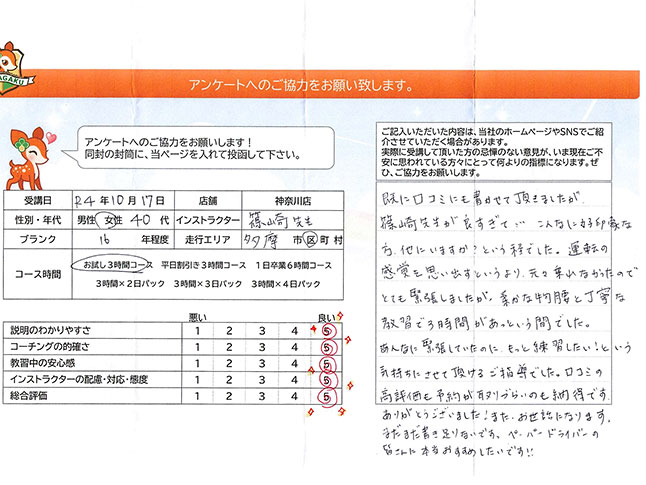 AGAKU
アンケートへのご協力をお願い致します。
アンケートへのご協力をお願いします！
同封の封筒に、当ページを入れて投函して下さい。
受講日 R4年10月17日 店舗 神奈川店
性別・年代 男性 女性 40代 インストラクター 篠崎先生
ブランク 16 年程度 走行エリア 多摩 市 区 町 村
コース時間 お試し3時間コース 平日割引き3時間コース 1日卒業6時間コース
3時間×2日パック 3時間×3日パック 3時間×4日パック
悪い 良い
説明のわかりやすさ 1 2 3 4 5
コーチングの的確さ 1 2 3 4 5
教習中の安心感 1 2 3 4 5
インストラクターの配慮・対応・態度 1 2 3 4 5
総合評価 1 2 3 4 5
ご記入いただいた内容は、当社のホームページやSNSでご紹
介させていただく場合があります。
実際に受講して頂いた方の忌憚のない意見が、いま現在ご不
安に思われている方々にとって何よりの指標になります。ぜ
ひ、ご協力をお願いします。
既に口コミにも書かせて頂きましたが、
篠崎先生が良すぎて… こんなに好印象な
方、他にいますか？という程でした。運転の
感覚を思い出すというより、元々乗れなかったので
とても緊張しましたが、柔かな物腰と丁寧な
教習で3時間があっという間でした。
あんなに緊張していたのに、もっと練習したい！という
気持ちにさせて頂けるご指導でした。口コミの
高評価も予約が取りづらいのも納得です。
ありがとうございました！また、お世話になります。
まだまだ書き足りないです。ペーパードライバーの
皆さんに本当おすすめしたいです!!